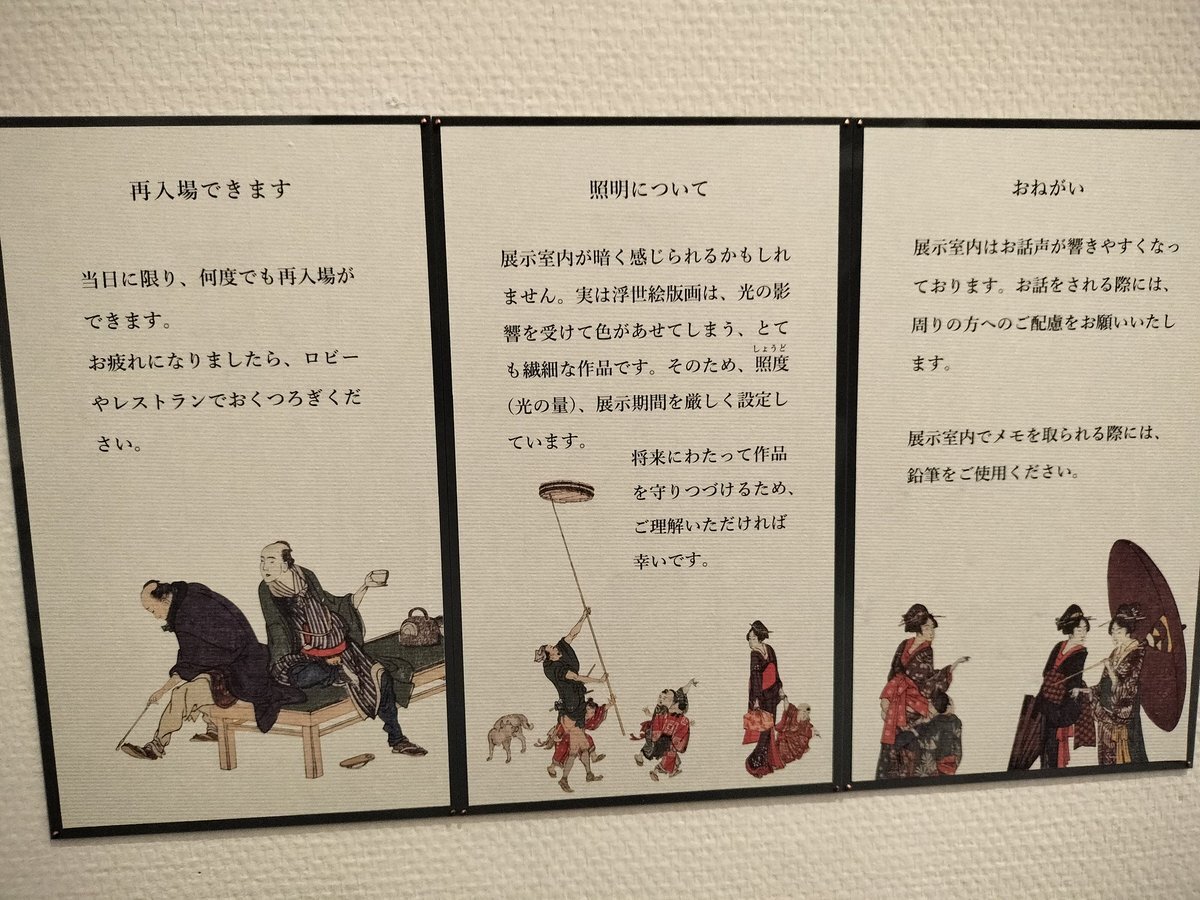 再入場できます
当日に限り、何度でも再入場が
できます。
お疲れになりましたら、ロビー
やレストランでおくつろぎくだ
さい。
照明について
展示室内が暗く感じられるかもしれ
ません。実は浮世絵版画は、光の影
響を受けて色があせてしまう、とて
も繊細な作品です。そのため、照度
しょうど
（光の量）、展示期間を厳しく設定し
ています。
将来にわたって作品
を守りつづけるため、
ご理解いただければ
幸いです。
おねがい
展示室内はお話声が響きやすくなっ
ております。お話をされる際には、
周りの方へのご配慮をお願いいたし
ます。
展示室内でメモを取られる際には、
鉛筆をご使用ください。